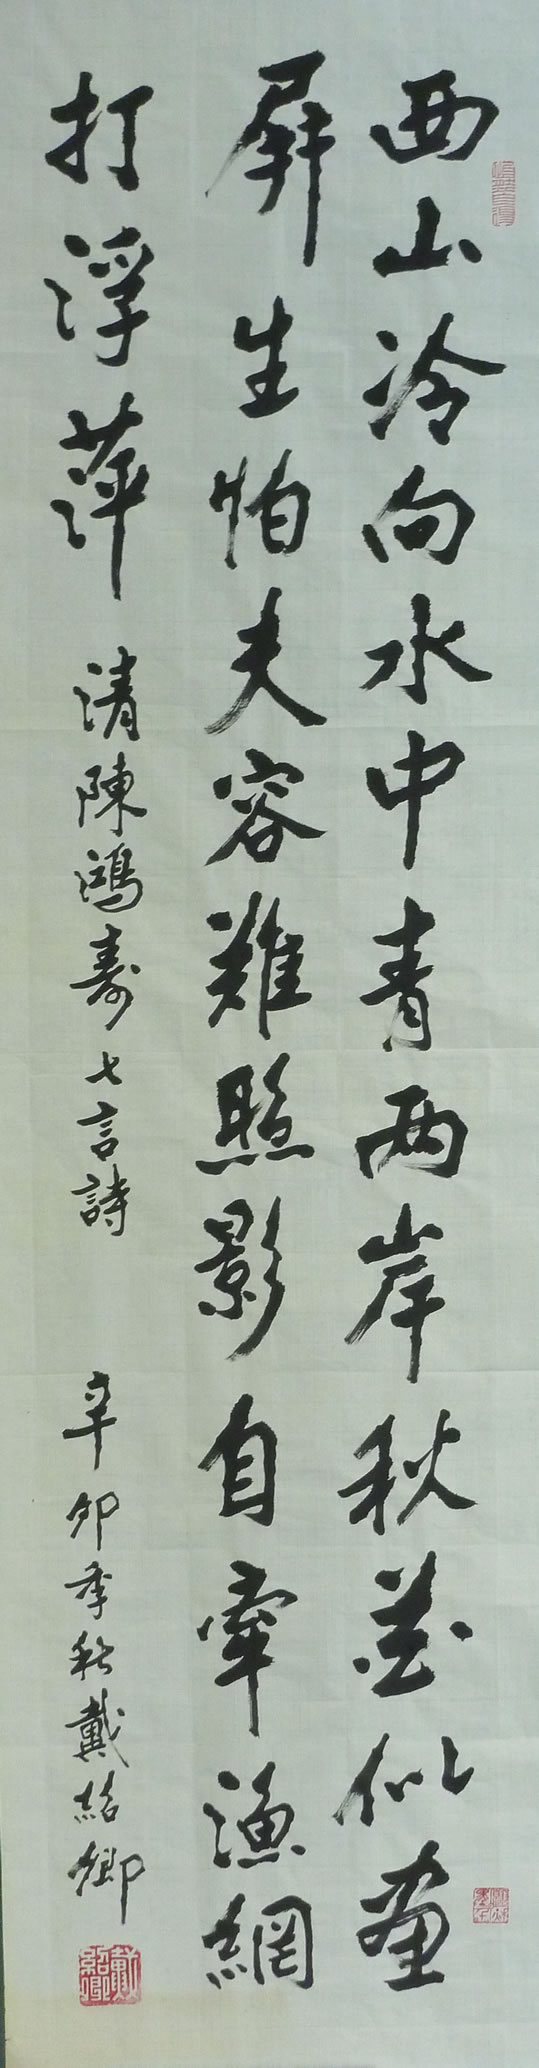 西山冷向水中青两岸秋花似画
屏生怕夫容難照影自牽漁網
打浮萍 清陳鴻壽七言詩 辛卯季秋戴紹卿
戴紹卿